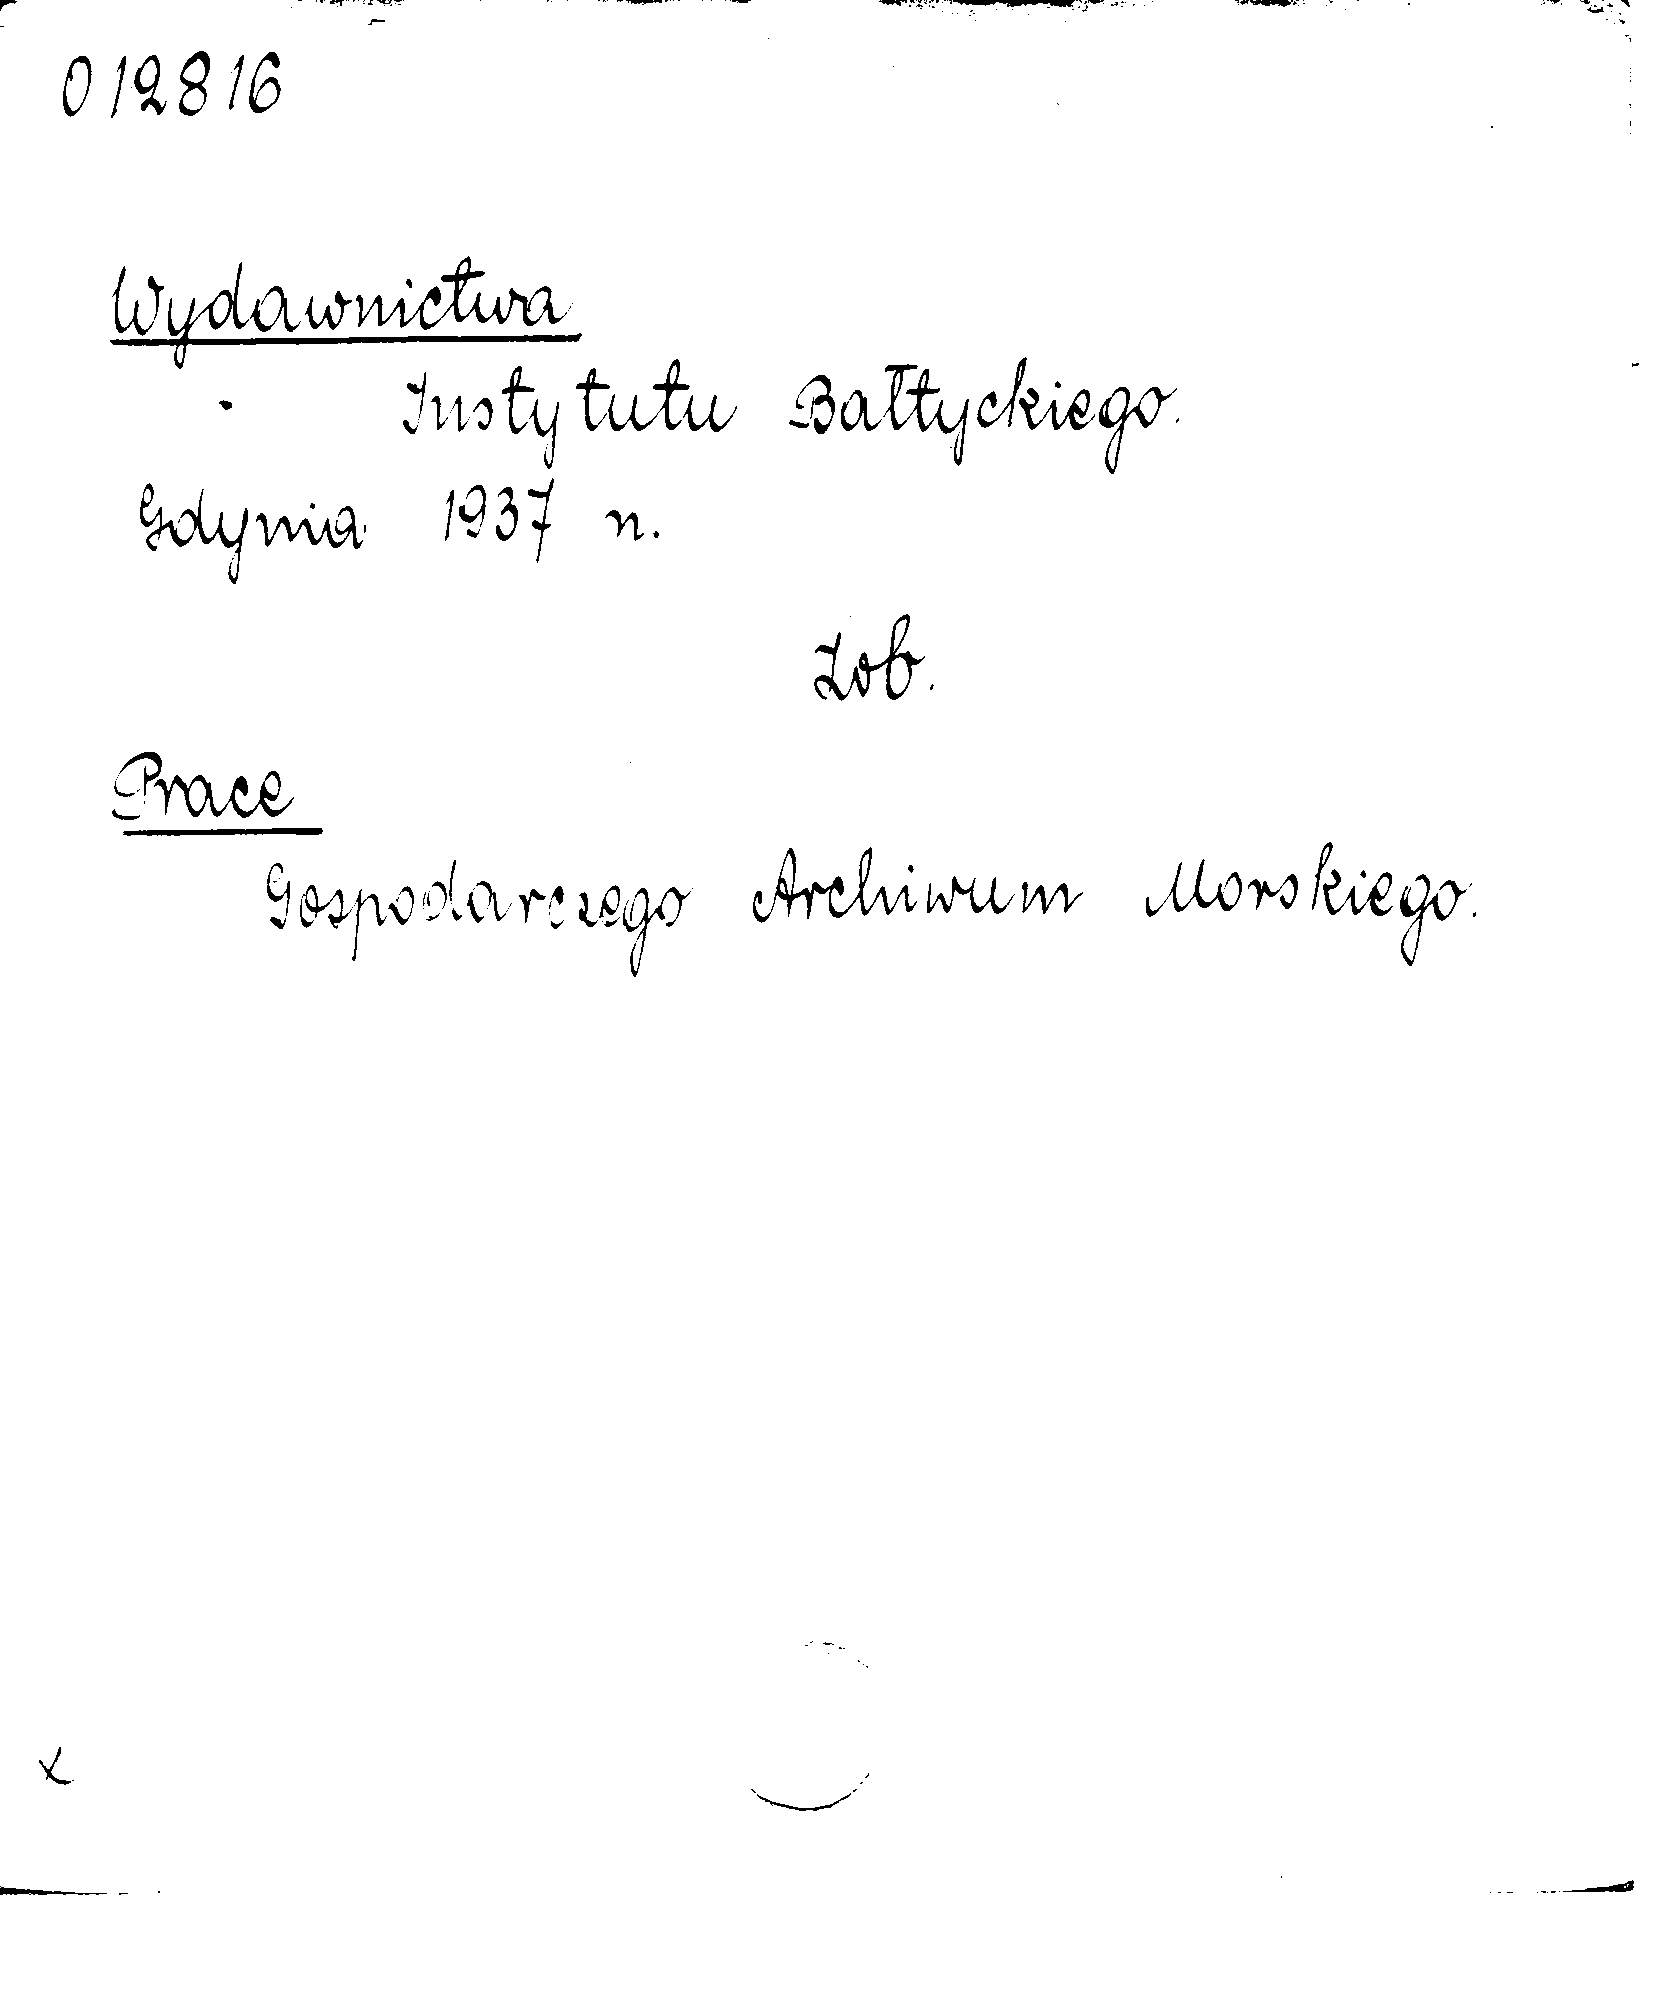 012816
Wydawnictwa
Instytutu Bałtyckiego.
Gdynia 1937 n.
Zob.
Prace
Gospodarczego Archiwum Morskiego.
x